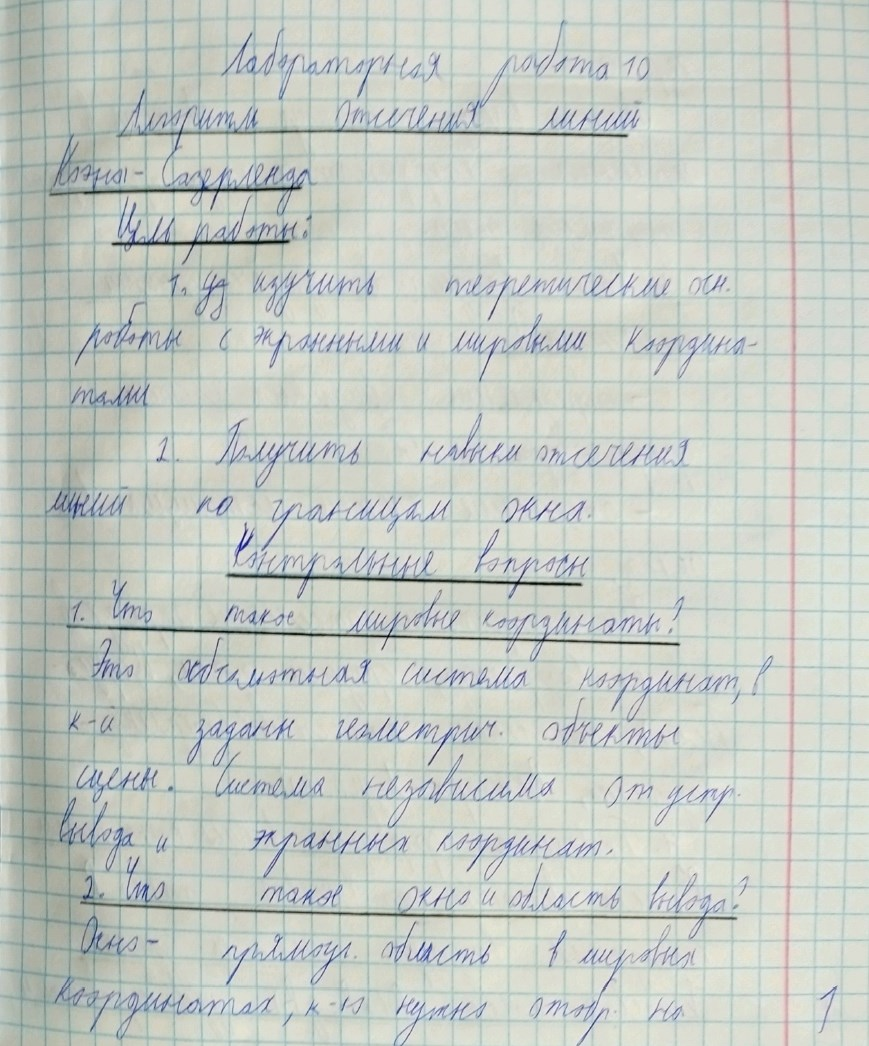 Лабораторная работа 10
Алгоритм отсечения линий
Коэна-Сазерленда
Цель работы:
1. изучить теоретические осн.
работы с экранными и мировыми координа-
тами
2. Получить навыки отсечения
линий по границам окна.
Контрольные вопросы
1. Что такое мировые координаты?
Это абсолютная система координат, в
к-й заданы геометрич. объекты
сцены. Система независима от устр.
вывода и экранных координат.
2. Что такое окно и область вывода?
Окно- прямоуг. область в мировых
координатах, к-ю нужно отобр. на
1